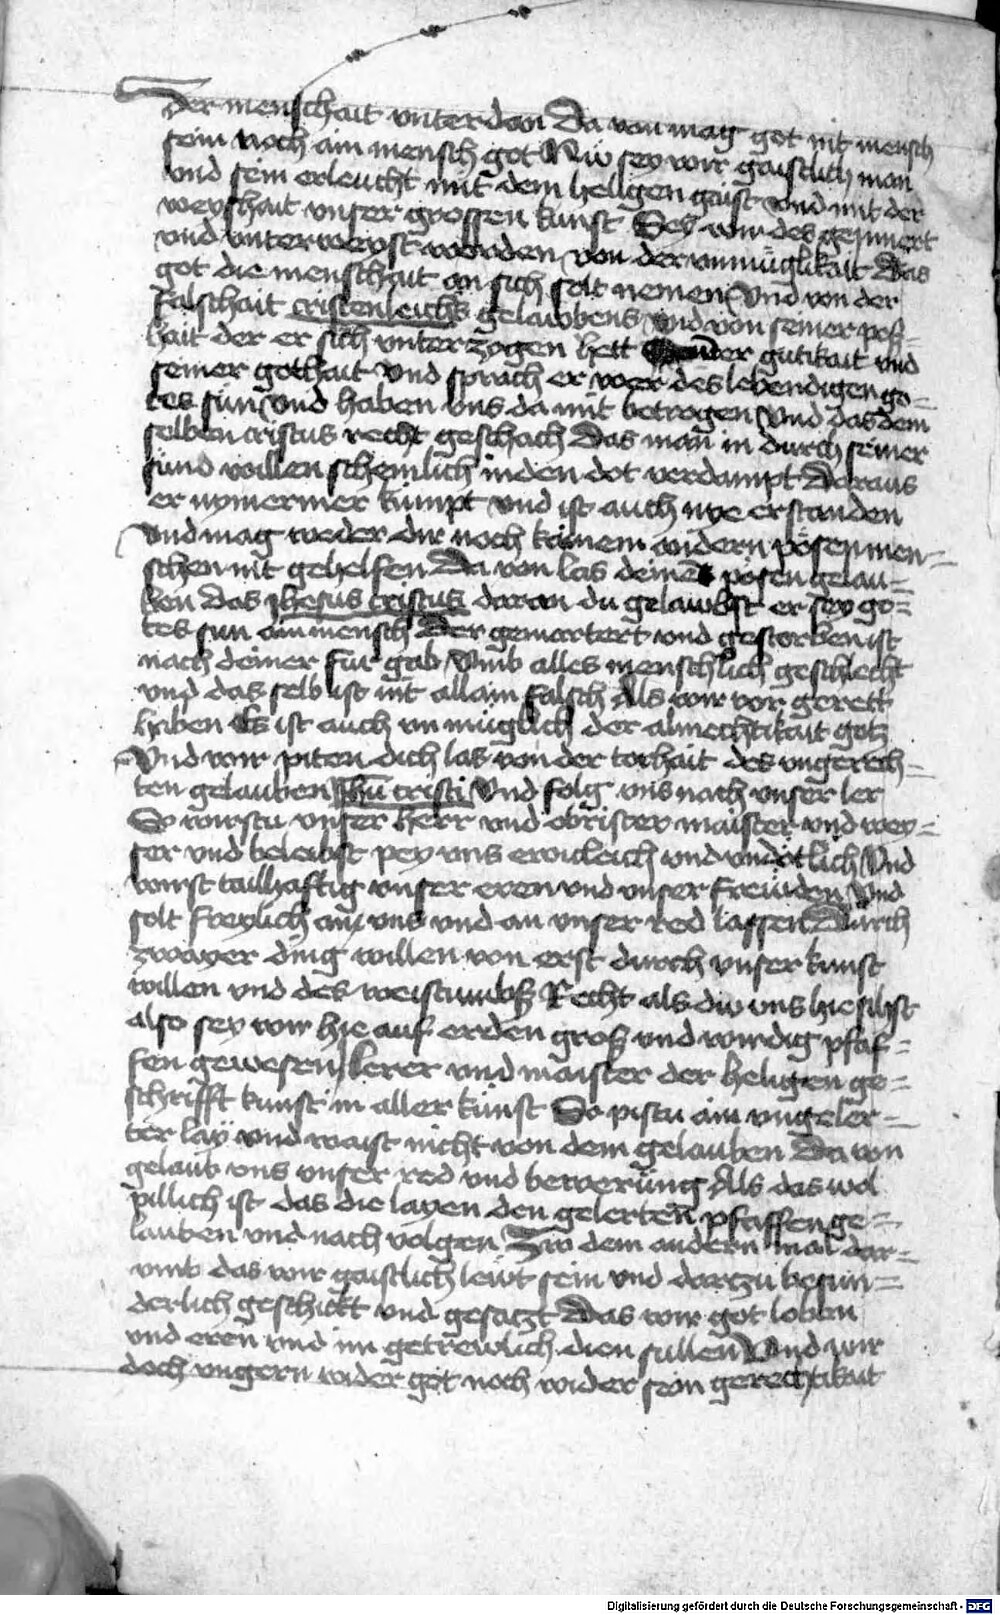 der menschait vnterdan Da von mag got nit mensch
sein noch ain mensch got Nw sey wir gaistlich man
vnd sein erleucht mit dem heligen gaist vnd mit der
weyshait vnser grossen kunst Sey wir des gejnnert
vnd vnterweyst worden von der vnmüglikait Das
got die menschait an sich solt nemen Vnd von der
falschait cristenleichs gelawbens vnd von seiner pos=
hait der er sich vnterzogen hett der gutikait vnd
seiner gothait Vnd sprach er wer des lebendigen go=
tes sün Vnd haben vns da mit betrogen Vnd das dem
selben cristus recht geschach Das man in durch seiner
sünd willen schemlich in den dot verdampt Daraus
er nymermer kümpt vnd ist auch nye erstanden
Vnd mag weder dir noch kainem andern pösen men=
schen nit gehelfen Da von las deinen pösen gelau=
ben Das Jhesus cristus daran du gelawbst er sey go=
tes sun ain mensch Der gemartert vnd gestorben ist
nach deiner für gab Vmb alles menschlich geschlecht
vnd das selb ist nit allain falsch Als wir vor gerett
haben Es ist auch vn müglich der almechtikait gotz
Vnd wir piten dich las von der torhait des vngerech=
ten gelauben Jhū cristi Vnd folg vns nach vnser ler
So wirstu vnser herr vnd obrister maister vnd wey=
ser vnd beleibst pey vns ewicleich vnd vndötlich Vnd
wirst tailhaftig vnser eren vnd vnser freüden Vnd
solt freylich an vns vnd an vnser red lassen Durch
zwayer ding willen von erst durch vnser kunst
willen vnd des weistumbß Recht als dw vns hie sihst
also sey wir hie auf erden groß vnd wirdig pfaf=
fen gewesen lerer vnd maister der heligen ge=
schrifft kunst in aller kunst So pistu ain vngeler=
ter lay vnd waist nicht von dem gelauben Da von
gelaub vns vnser red vnd bewerüng Als das wol
pillich ist das die layen den gelerten pfaffen ge=
lauben vnd nach volgen Zw dem andern mal dar=
vmb das wir gaistlich lewt sein vnd darzu besun=
derlich geschickt vnd gesatzt Das wir got loben
vnd eren vnd im getrewlich dien sullen Vnd wir
doch vngern wider got noch wider sein gerechtikait
Digitalisierung gefördert durch die Deutsche Forschungsgemeinschaft - DFG